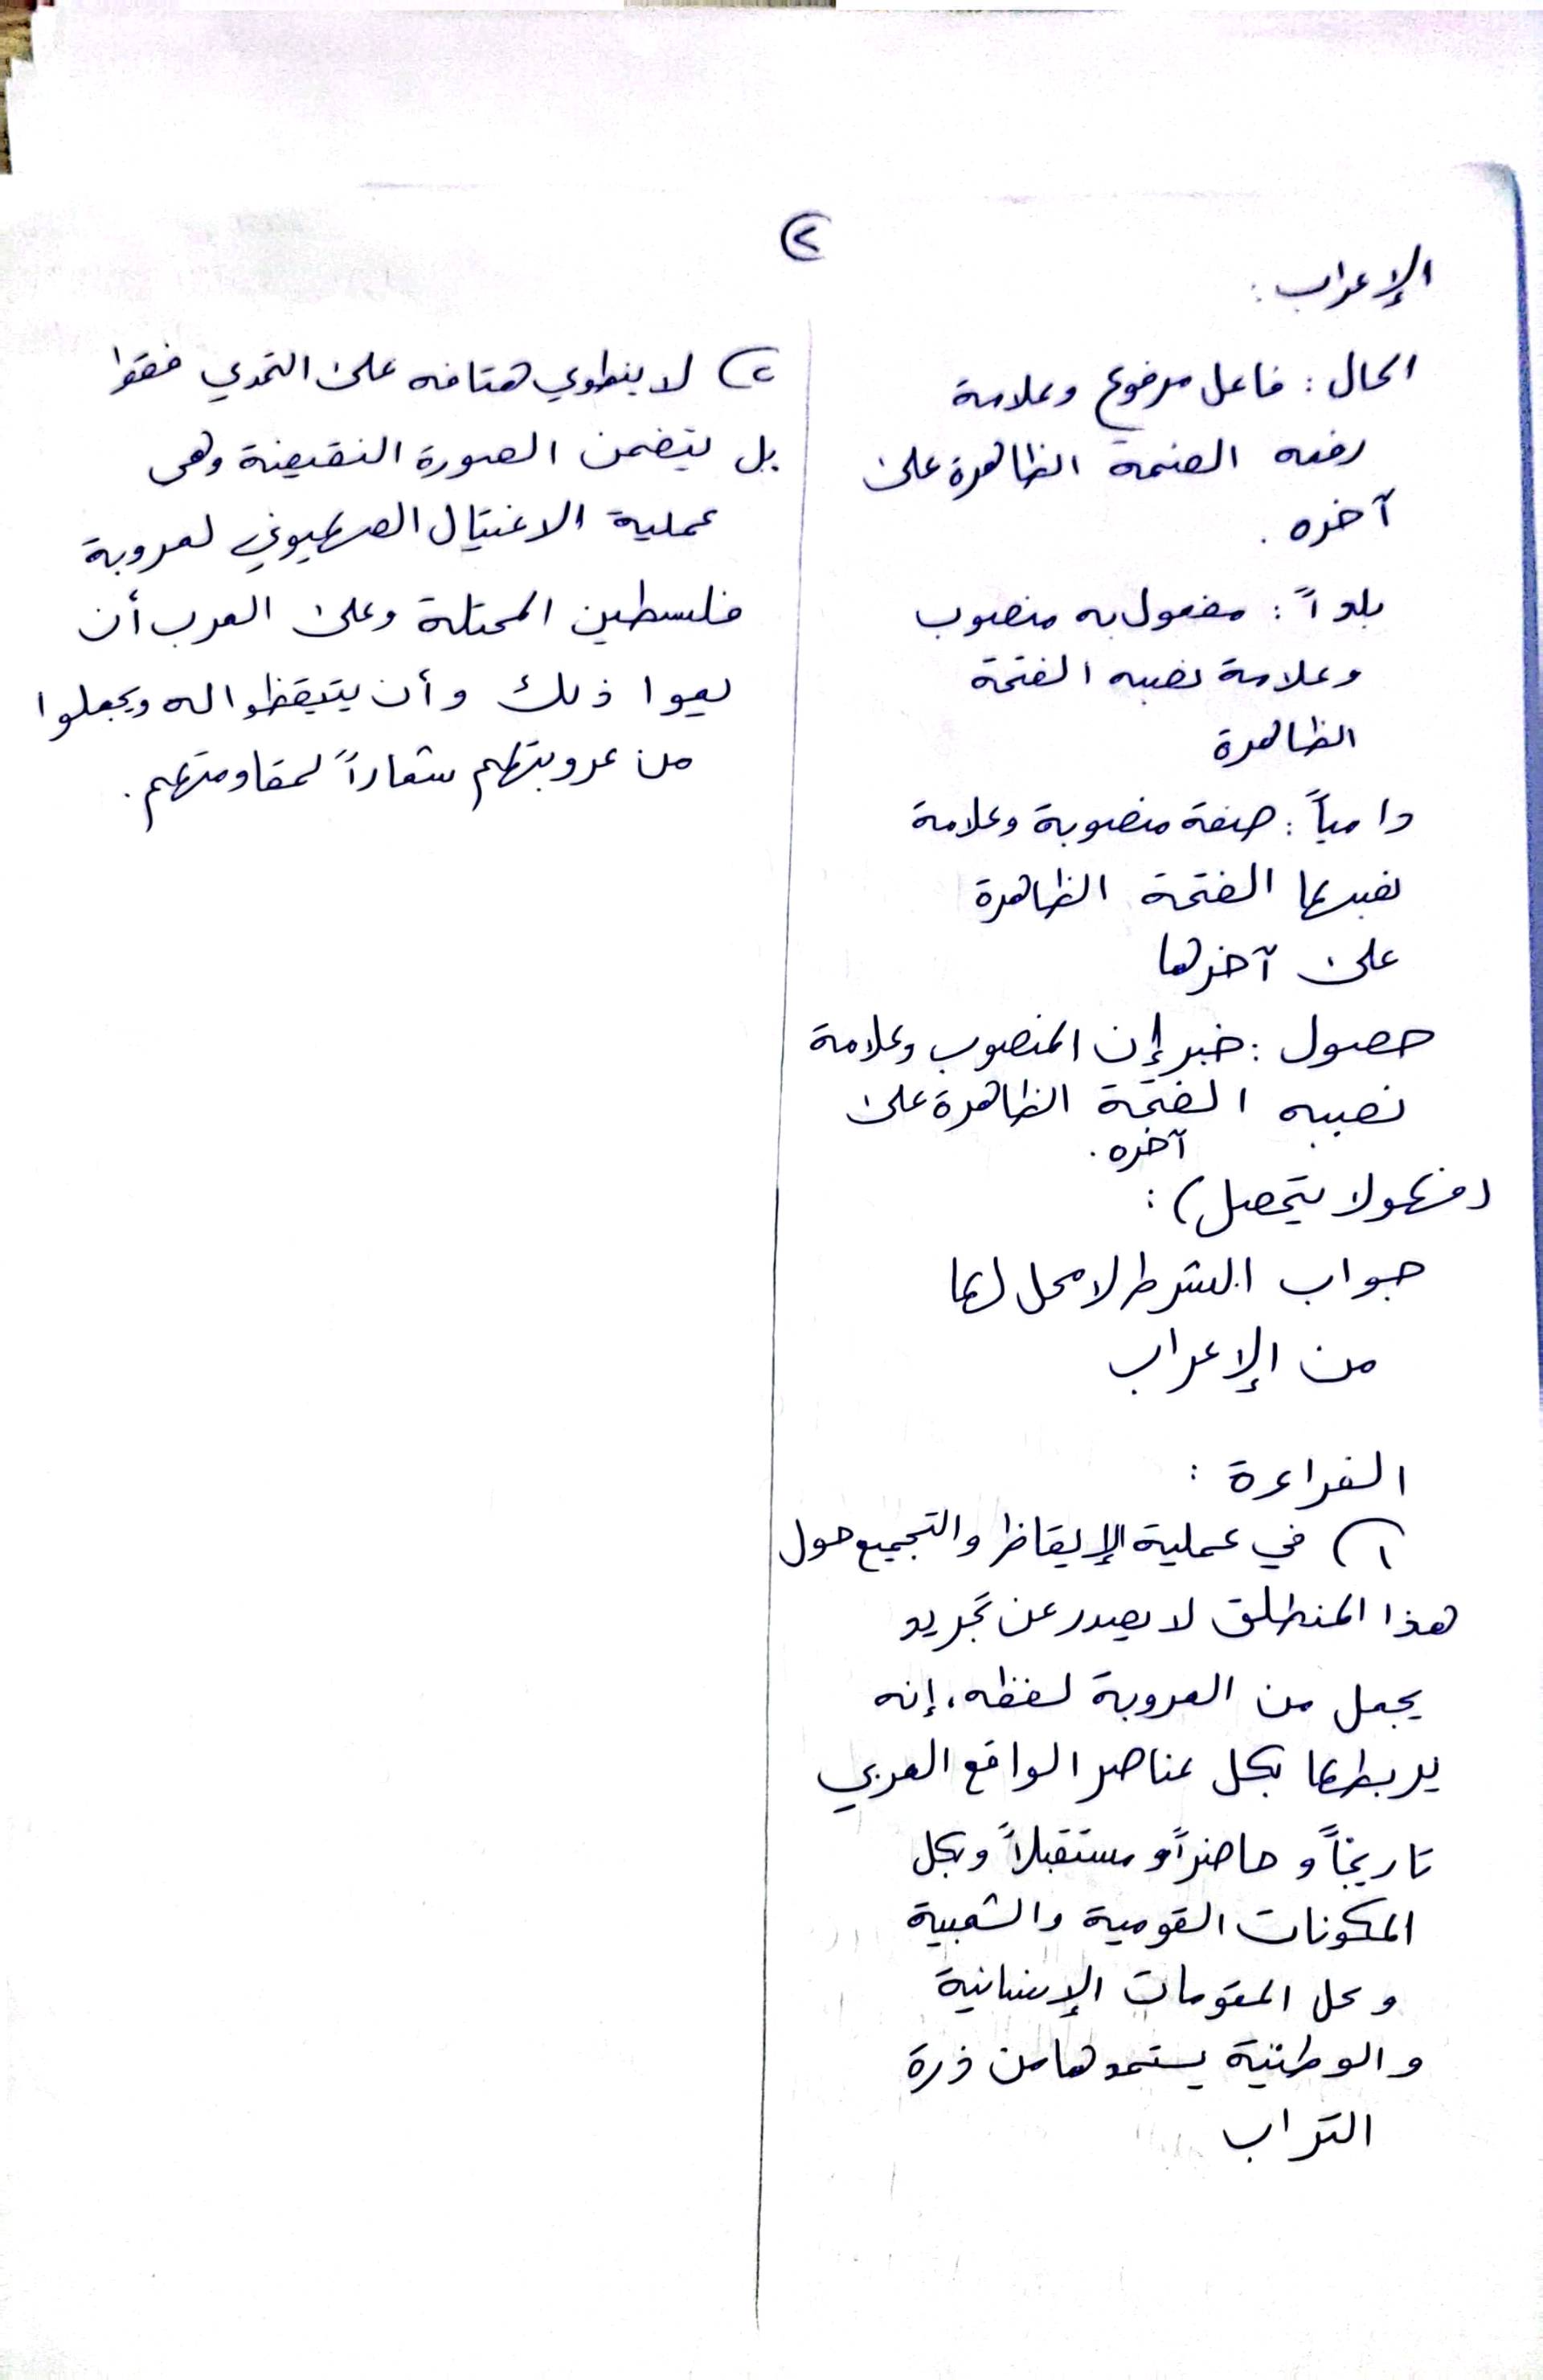 ٢
الإعراب :
الحال : فاعل مرفوع وعلامة
رفعه الضمة الظاهرة على
آخره .
بلداً : مفعول به منصوب
وعلامة نصبه الفتحة
الظاهرة
دامياً : صفة منصوبة وعلامة
نصبها الفتحة الظاهرة
على آخرها
حصول : خبر إن المنصوب وعلامة
نصبه الفتحة الظاهرة على
آخره .
(فهو لا يتحصل) :
جواب الشرط لا محل لها
من الإعراب
القراءة :
١) في عملية الإيقاظ والتجميع حول
هذا المنطلق لا يصدر عن تجريد
يجعل من العروبة لفظه، إنه
يربطها بكل عناصر الواقع العربي
تاريخاً و حاضراً و مستقبلاً وبكل
المكونات القومية والشعبية
وكل المقومات الإنسانية
والوطنية يستمدها من ذرة
التراب
٢) لا ينطوي هتافه على التحدي فقط
بل يتضمن الصورة النقيضة وهي
عملية الاغتيال الصهيوني لعروبة
فلسطين المحتلة وعلى العرب أن
يعوا ذلك وأن يتيقظوا له ويجعلوا
من عروبتهم شعاراً لمقاومتهم .